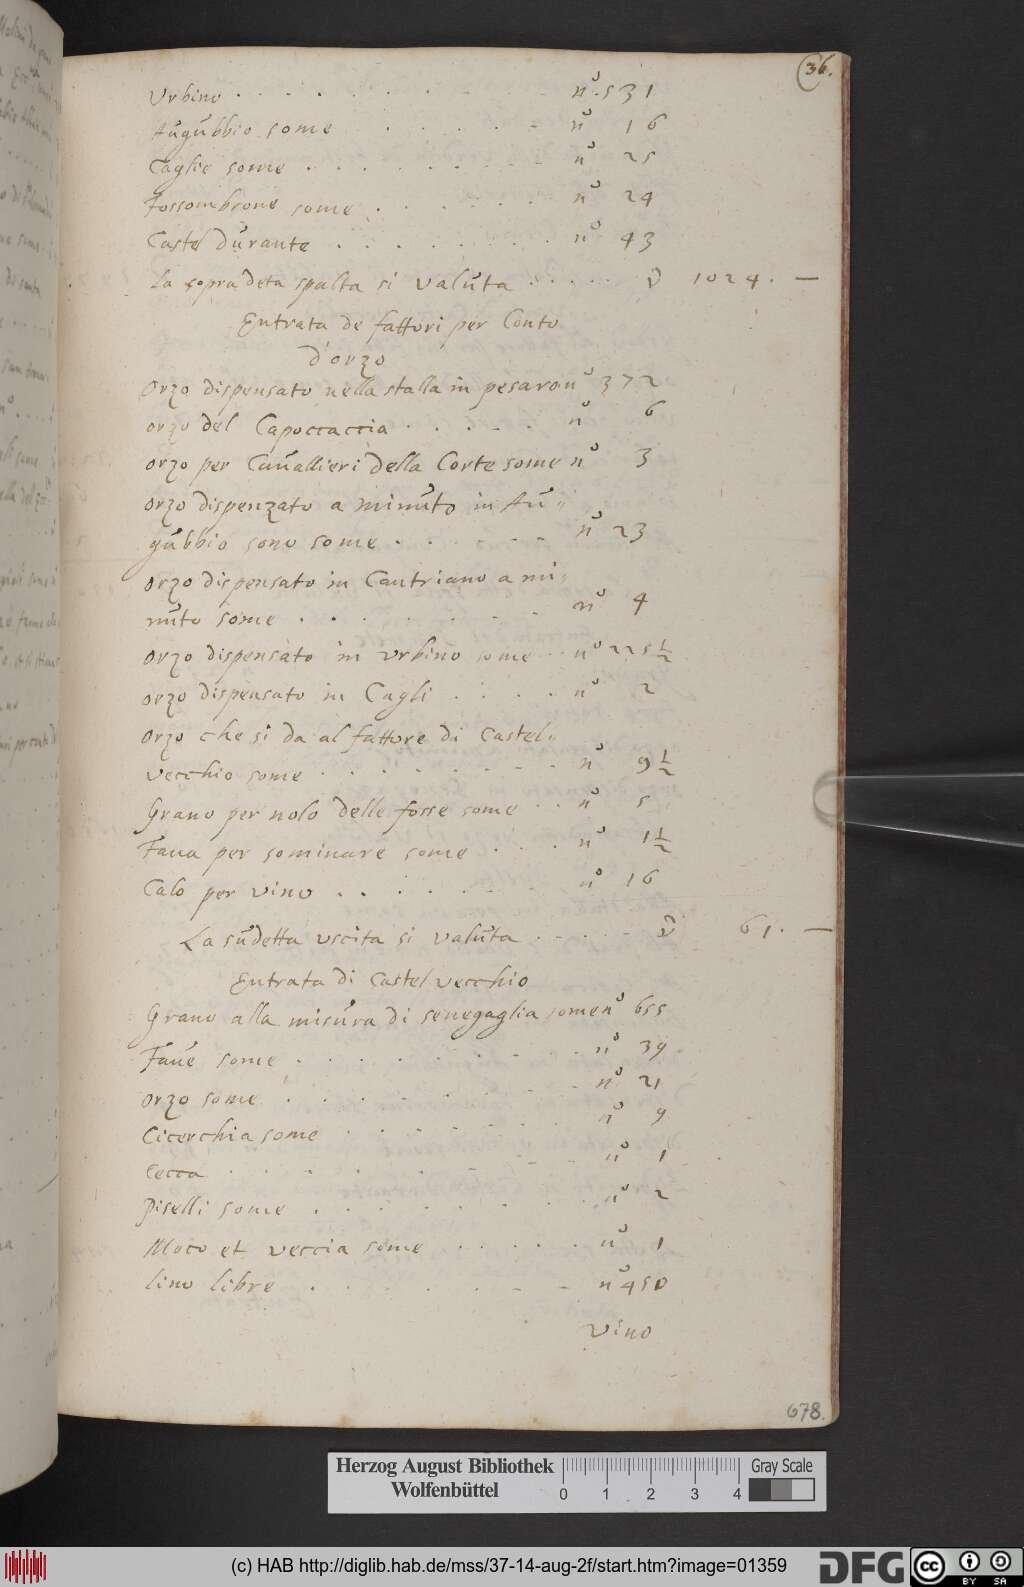 36.
Vrbino . . . . . . . . . n.º 531
Augubbio some . . . . . nº 16
Caglie some . . . . . . nº 25
Fossombrone some . . . . . . nº 24
Castel Durante . . . . . . . nº 43
La sopradeta spalta si valuta . . . . . 1024. —
Entrata de fattori per Conto
d'orzo
Orzo dispensato nella stalla in pesaro nº 372
orzo del Capoccaccia . . . . . nº 6
orzo per Cauallieri della Corte some nº 3
orzo dispenzato a minuto in Au„
gubbio sono some . . . . . . nº 23
orzo dispensato in Cantriano a mi„
nuto some . . . . . . . . nº 4
orzo dispensato in vrbino some . . nº 225½
orzo dispensato in Cagli . . . . nº 2
orzo che si da al fattore di Castel„
vecchio some . . . . . . . . nº 9½
Grano per nolo delle fosse some . . nº 5
Faua per sominare some . . . nº 1½
Calo per vino . . . . . . . nº 16
La sudetta vscita si valuta . . . . . 61. —
Entrata di Castel vecchio
Grano alla misura di senegaglia some nº 655
Faue some . . . . . . . . . nº 39
orzo some . . . . . . . . . nº 21
Cicerchia some . . . . . . . nº 9
Cecca . . . . . . . . . nº 1
Piselli some . . . . . . . . nº 2
Moco et veccia some . . . . . nº 1
lino libre . . . . . . . nº 450
vino
678.
Herzog August Bibliothek
Wolfenbüttel
0 1 2 3 4
Gray Scale
(c) HAB http://diglib.hab.de/mss/37-14-aug-2f/start.htm?image=01359
DFG
cc BY SA